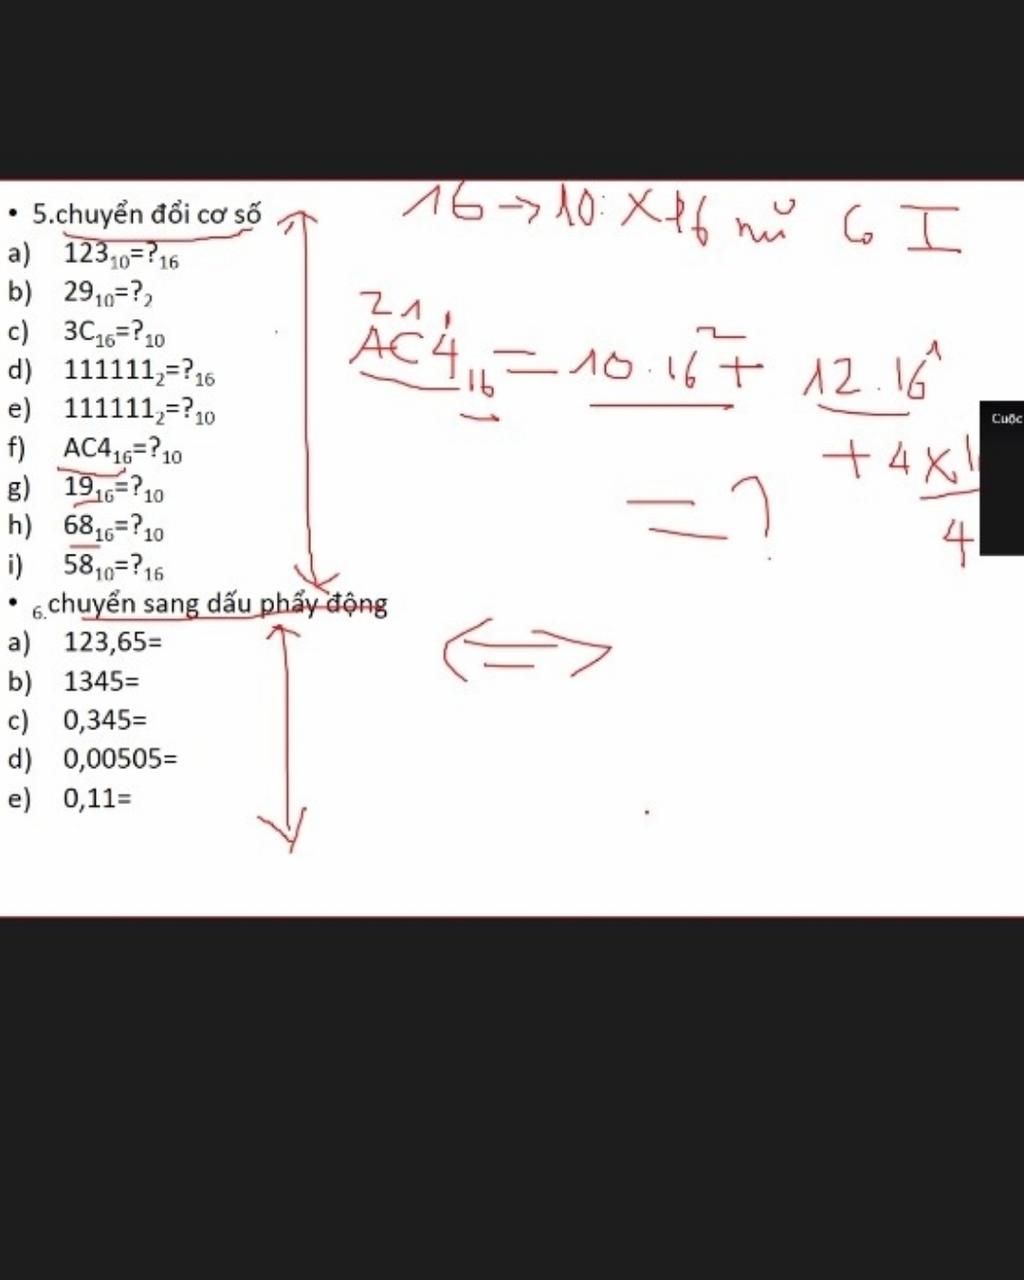 • 5.chuyển đổi cơ số
a) 123₁₀=?₁₆
b) 29₁₀=?₂
c) 3C₁₆=?₁₀
d) 111111₂=?₁₆
e) 111111₂=?₁₀
f) AC4₁₆=?₁₀
g) 19₁₆=?₁₀
h) 68₁₆=?₁₀
i) 58₁₀=?₁₆
• 6.chuyển sang dấu phẩy động
a) 123,65=
b) 1345=
c) 0,345=
d) 0,00505=
e) 0,11=
16 → 10: x 16 mũ
2 1
AC4₁₆ = 10.16² + 12.16¹
+ 4 x
= ?
4
Cuộc